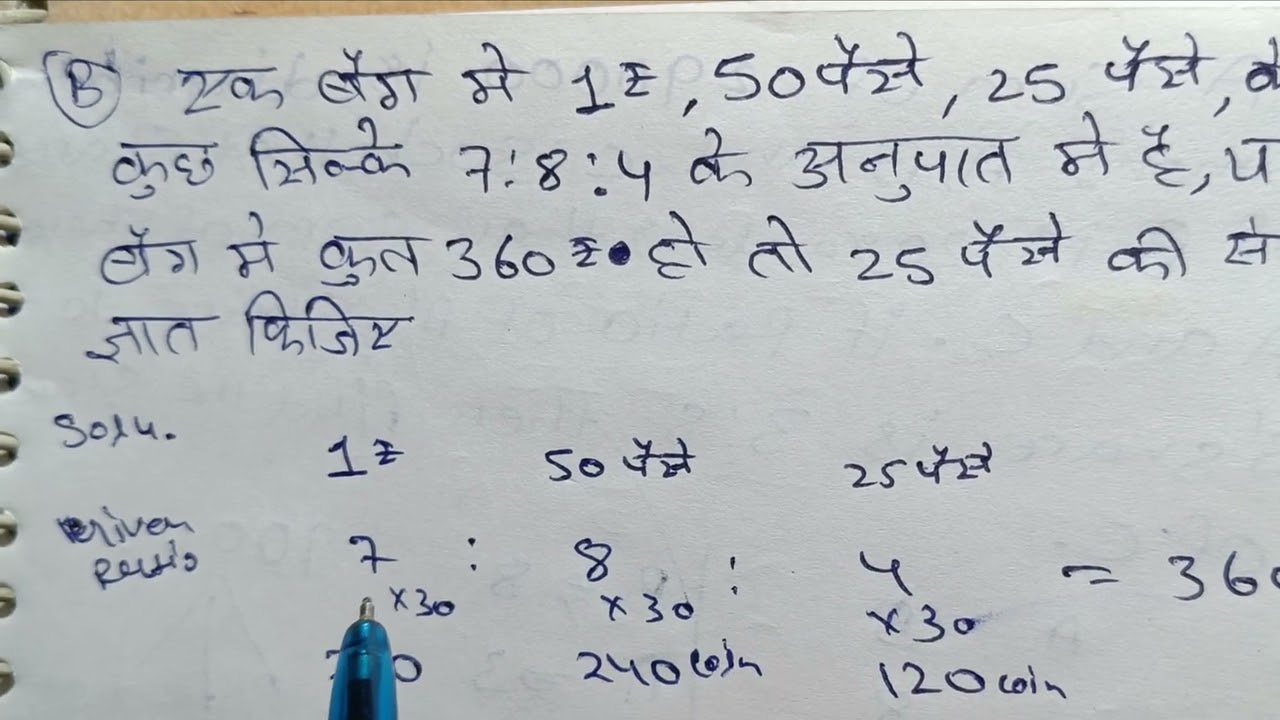 B एक बैग मे 1₹, 50 पैसे, 25 पैसे,
कुछ सिक्के 7:8:4 के अनुपात मे है,
बैग मे कुल 360₹ हो तो 25 पैसे की
ज्ञात किजिए
Solu.
1₹ 50 पैसे 25 पैसे
Given
Ratio
7 : 8 : 4 = 360
×30 ×30 ×30
240 coin 120 coin